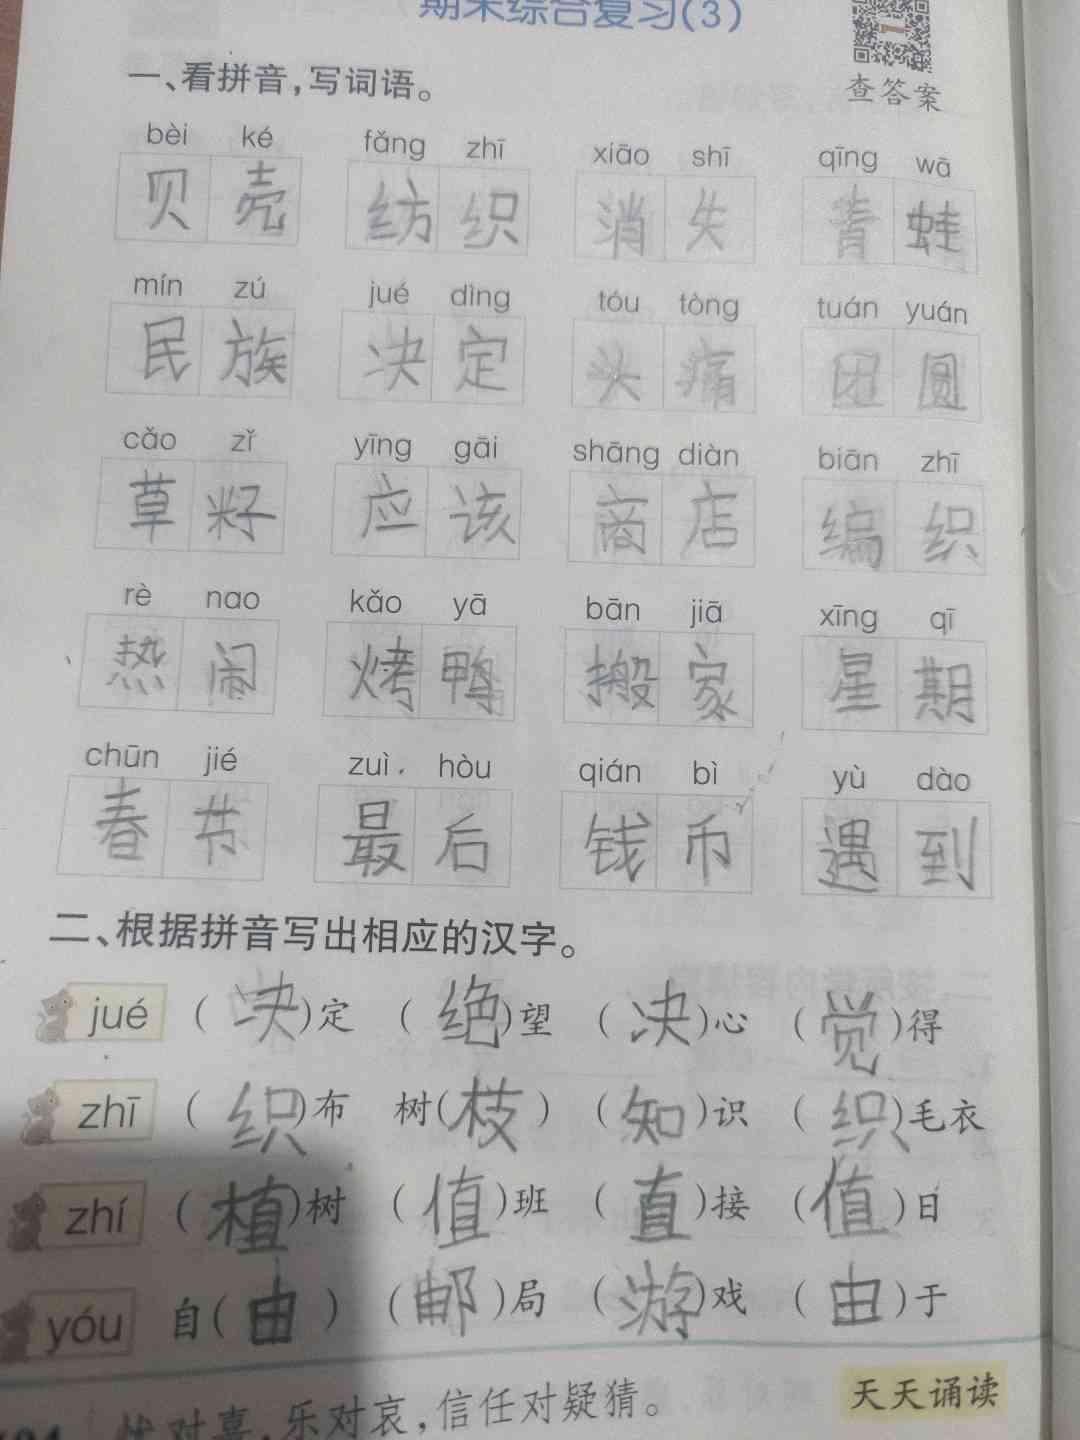 期末综合复习(3)
查答案
一、看拼音,写词语。
bèi ké fǎng zhī xiāo shī qīng wā
贝壳 纺织 消失 青蛙
mín zú jué dìng tóu tòng tuán yuán
民族 决定 头痛 团圆
cǎo zǐ yīng gāi shāng diàn biān zhī
草籽 应该 商店 编织
rè nao kǎo yā bān jiā xīng qī
热闹 烤鸭 搬家 星期
chūn jié zuì hòu qián bì yù dào
春节 最后 钱币 遇到
二、根据拼音写出相应的汉字。
jué (决)定 (绝)望 (决)心 (觉)得
zhī (织)布 树(枝) (知)识 (织)毛衣
zhí (植)树 (值)班 (直)接 (值)日
yóu 自(由) (邮)局 (游)戏 (由)于
忧对喜,乐对哀,信任对疑猜。 天天诵读